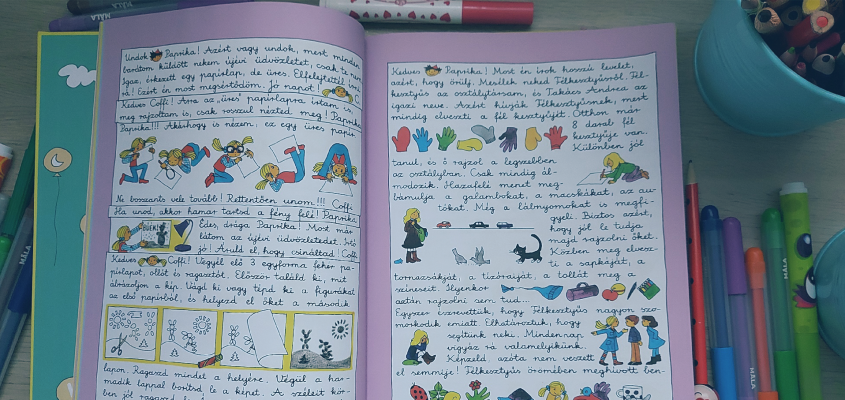 Undok Paprika! Azért vagy undok, mert minden
barátom küldött nekem újévi üdvözletet, csak te nem.
Igaz, érkezett egy papírlap, de üres. Elfelejtettél írni
rá! Ezért én most megsértődöm. Jó napot!
Kedves Coffi! Arra az „üres" papírlapra írtam is,
meg rajzoltam is, csak rosszul nézted meg! Paprika
Paprika!!! Akárhogy is nézem, ez egy üres papír
Ne bosszants vele tovább! Rettentően unom!!! Coffi
Ha unod, akkor hamar tartsd a fény felé! Paprika
BUÉK!
Édes, drága Paprika! Most már
látom az újévi üdvözletedet.
jó! Áruld el, hogy csináltad! Coffi
Kedves Coffi! Végy elő 3 egyforma fehér pa-
pírlapot, ollót és ragasztót. Először találd ki, mit
ábrázoljon a kép. Vágd ki vagy tépd ki a figurákat
az első papírból, és helyezd el őket a második
lapon. Ragaszd mindet a helyére. Végül a har-
madik lappal borítsd le a képet. A széleit kör-
ben jól ragaszd
Kedves Paprika! Most én írok hosszú levelet,
azért, hogy örülj. Mesélek neked Félkesztyűsről. Fél-
kesztyűs az osztálytársam, és Takács Andrea az
igazi neve. Azért hívják Félkesztyűsnek, mert
mindig elveszti a fél kesztyűjét. Otthon már
8 darab fél
kesztyűje van.
Különben jól
tanul, és ő rajzol a legszebben
az osztályban. Csak mindig ál-
modozik. Hazafelé menet meg-
bámulja a galambokat, a macskákat, az au-
tókat. Még a lábnyomokat is megfi-
gyeli. Biztos azért,
hogy jól le tudja
majd rajzolni őket.
Közben meg elvesz-
ti a sapkáját, a
tornazsákját, a tízóraiját, a tollát meg a
színeseit. Ilyenkor
aztán rajzolni sem tud...
Egyszer észrevettük, hogy Félkesztyűs nagyon szo-
morkodik emiatt. Elhatároztuk, hogy
segítünk neki. Mindennap
vigyáz rá valamelyikünk.
Képzeld, azóta nem veszett
el semmije! Félkesztyűs örömében meghívott ben-
MÁLA
MÁLA
MÁLA
MÁLA